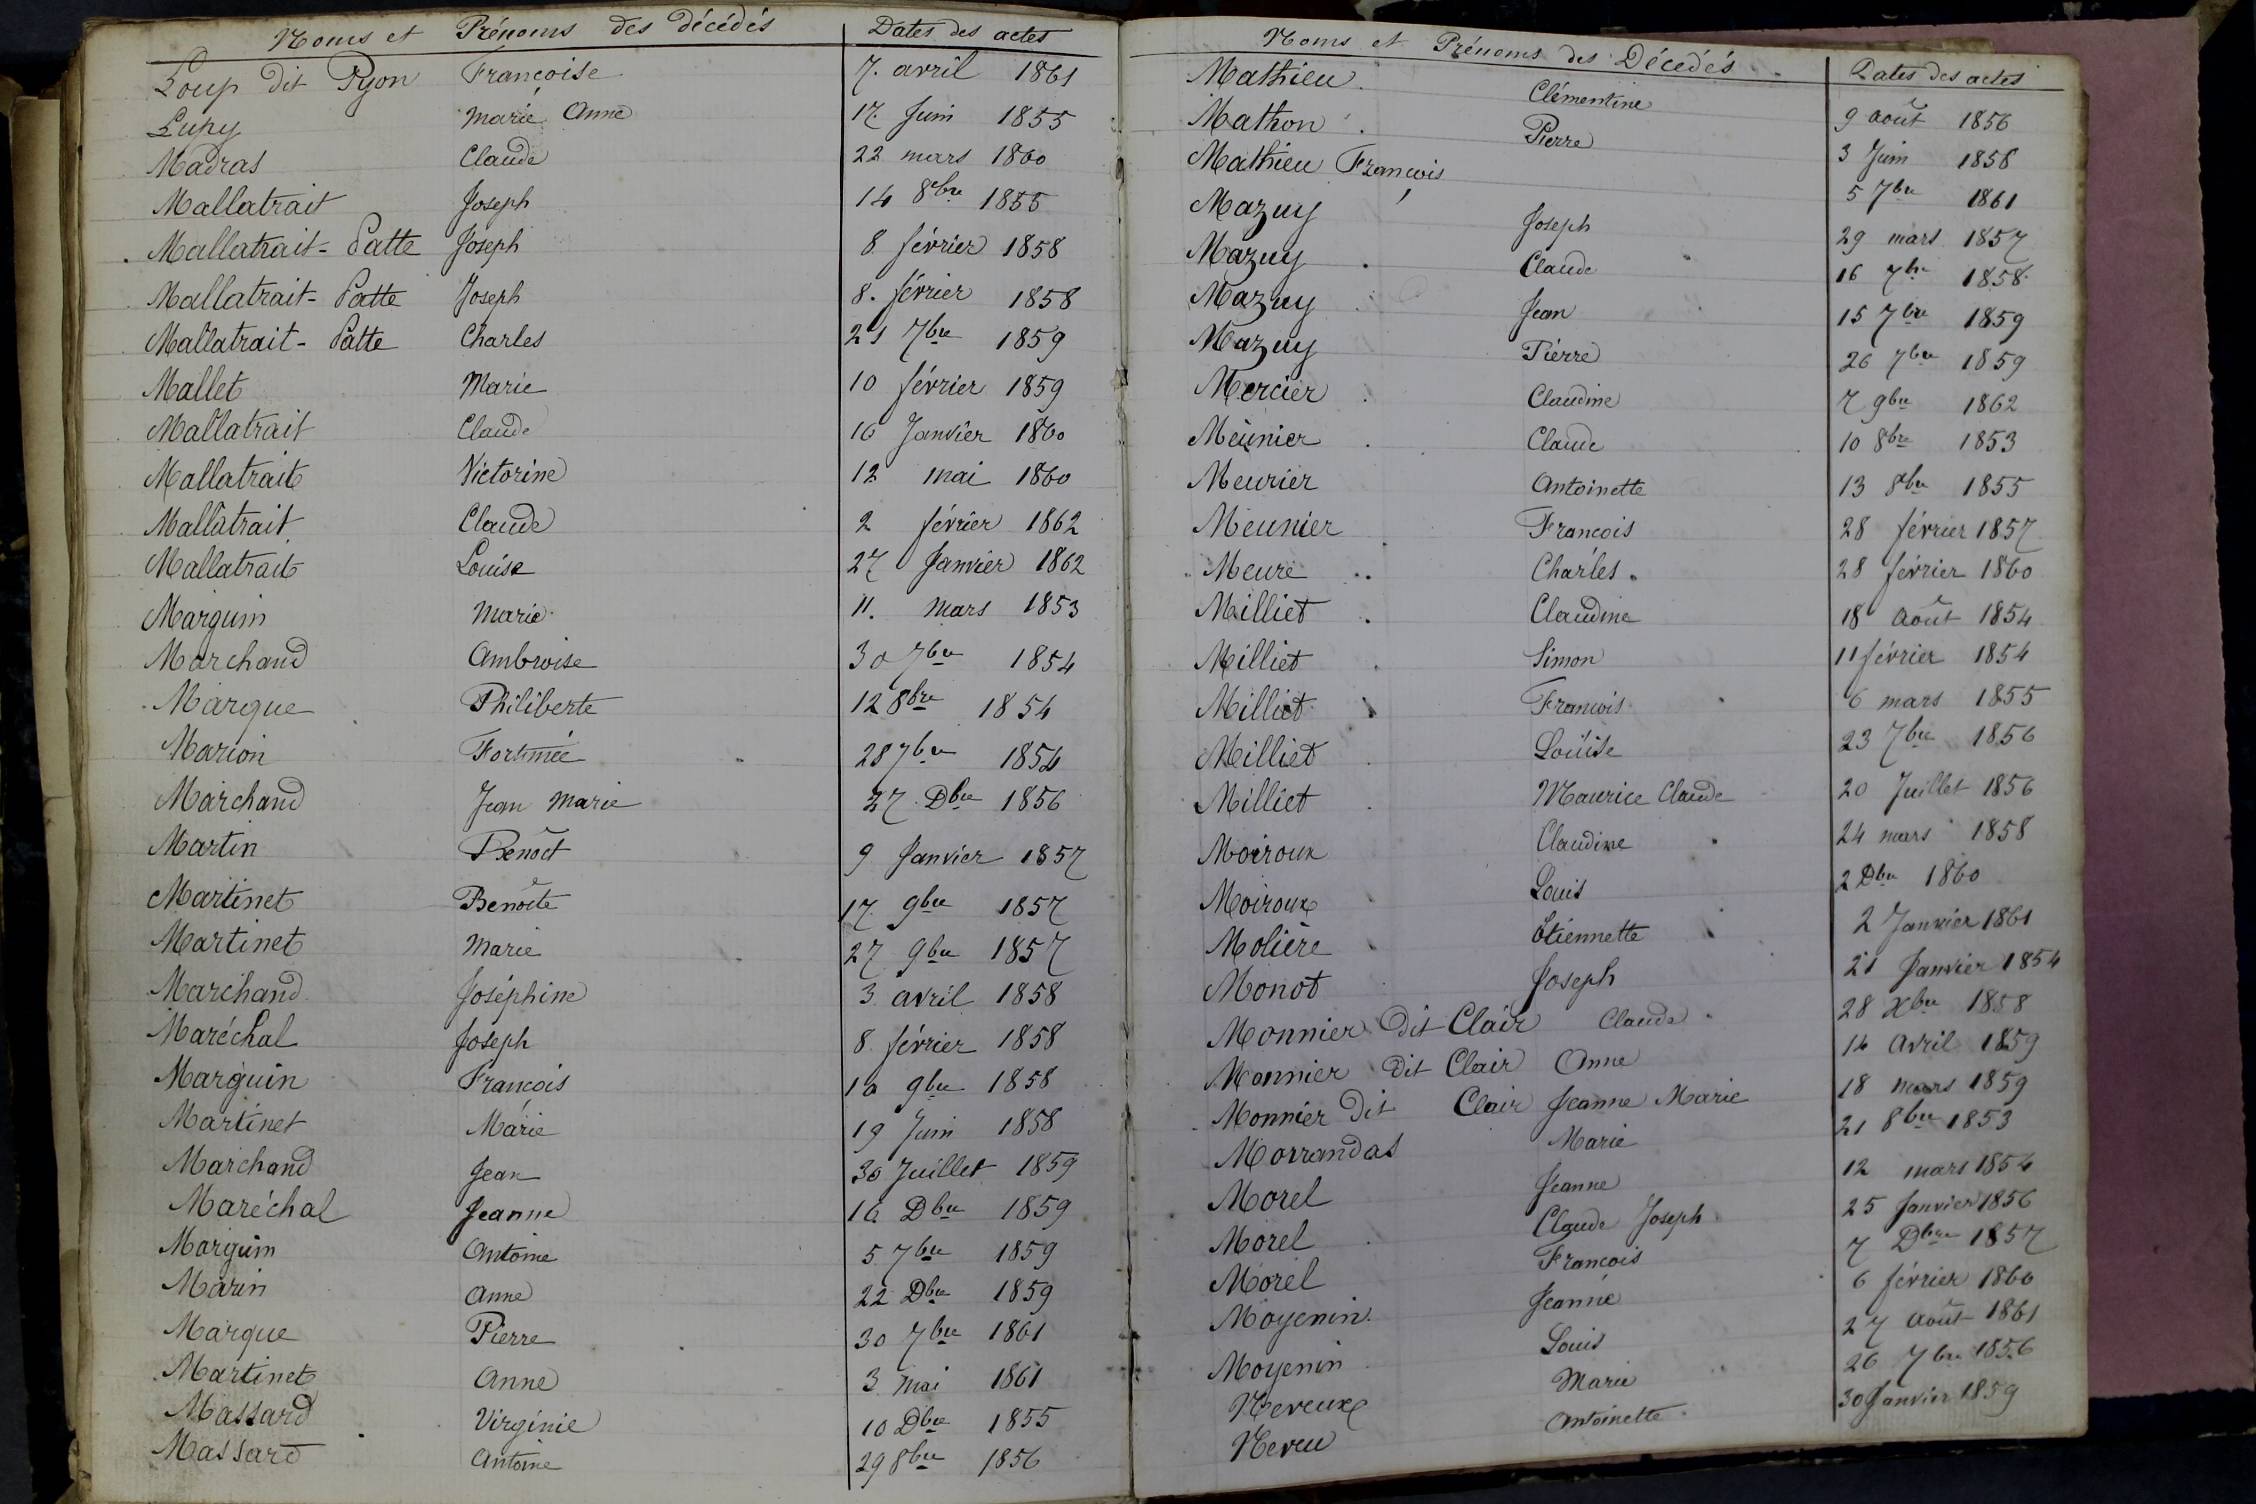 Noms et Prénoms des décédés Dates des actes
Loup dit Pyon Françoise 7. avril 1861
Lupy Marie Anne 17. Juin 1855
Madras Claude 22 mars 1860
Mallatrait Joseph 14 8bre 1855
Mallatrait-Patte Joseph 8 février 1858
Mallatrait-Patte Joseph 8. février 1858
Mallatrait-Patte Charles 21 7bre 1859
Mallet Marie 10 février 1859
Mallatrait Claude 16 Janvier 1860
Mallatrait Victorine 12 mai 1860
Mallatrait Claude 2 février 1862
Mallatrait Louise 27 Janvier 1862
Marguin Marie 11. mars 1853
Marchand Ambroise 30 7bre 1854
Marque Philiberte 12 8bre 1854
Marion Fortunée 28 7bre 1854
Marchand Jean Marie 27 Dbre 1856
Martin Benoît 9 Janvier 1857
Martinet Benoîte 17 9bre 1857
Martinet Marie 27 9bre 1857
Marchand Joséphine 3 avril 1858
Maréchal Joseph 8 février 1858
Marguin François 10 9bre 1858
Martinet Marie 19 Juin 1858
Marchand Jean 30 Juillet 1859
Maréchal Jeanne 16 Dbre 1859
Marguin Antoine 5 7bre 1859
Marin Anne 22 Dbre 1859
Marque Pierre 30 7bre 1861
Martinet Anne 3 mai 1861
Massard Virginie 10 Dbre 1855
Massard Antoine 29 8bre 1856
Noms et Prénoms des Décédés Dates des actes
Mathieu Clémentine 9 août 1856
Mathon Pierre 3 Juin 1858
Mathieu François 5 7bre 1861
Mazuy Joseph 29 mars 1857
Mazuy Claude 16 7bre 1858
Mazuy Jean 15 7bre 1859
Mazuy Pierre 26 7bre 1859
Mercier Claudine 7 9bre 1862
Meunier Claude 10 8bre 1853
Meurier Antoinette 13 8bre 1855
Meunier François 28 février 1857
Meure Charles 28 février 1860
Milliet Claudine 18 août 1854
Milliet Simon 11 février 1854
Milliet François 6 mars 1855
Milliet Louise 23 7bre 1856
Milliet Maurice Claude 20 Juillet 1856
Moiroux Claudine 24 mars 1858
Moiroux Louis 2 Dbre 1860
Molière Etiennette 2 Janvier 1861
Monot Joseph 21 Janvier 1854
Monnier dit Clair Claude 28 Xbre 1858
Monnier dit Clair Anne 14 avril 1859
Monnier dit Clair Jeanne Marie 18 mars 1859
Morrandas Marie 21 8bre 1853
Morel Jeanne 12 mars 1854
Morel Claude Joseph 25 Janvier 1856
Morel François 7 Dbre 1857
Moyenin Jeanne 6 février 1860
Moyenin Louis 27 août 1861
Nereux Marie 26 7bre 1856
Neveu Antoinette 30 Janvier 1859